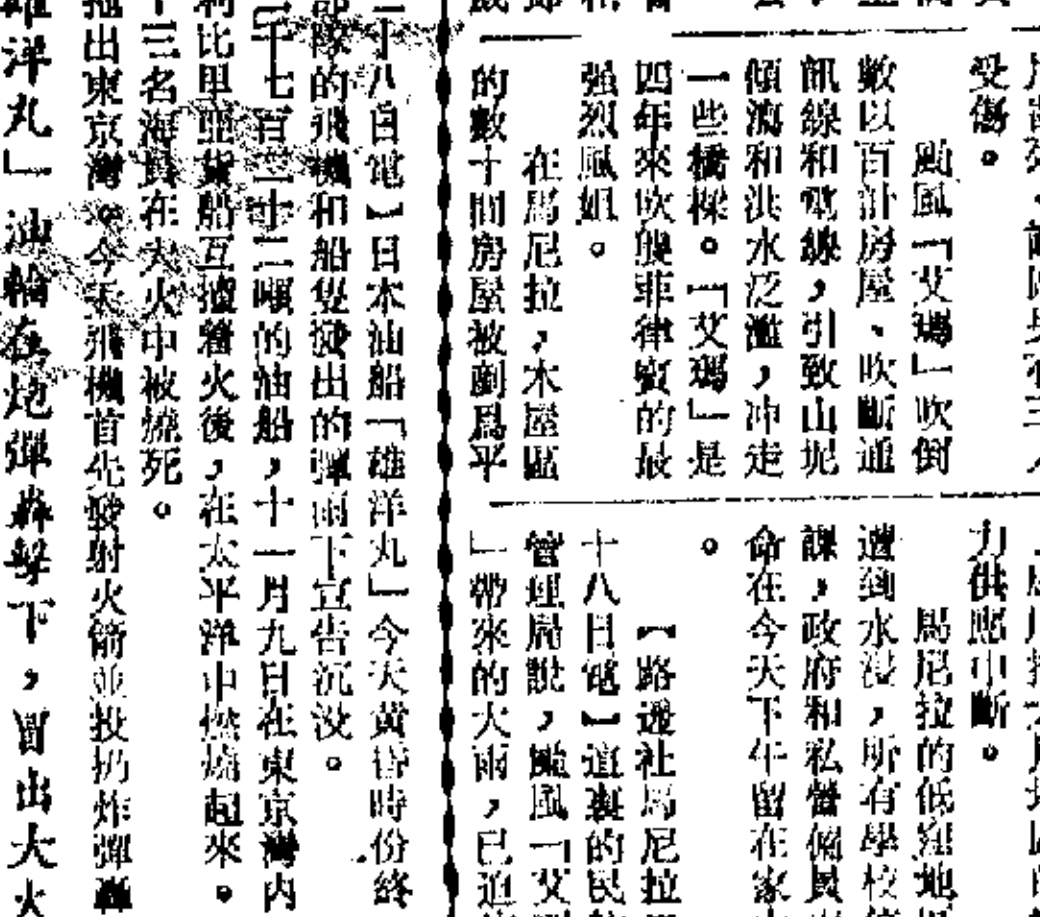 受傷。
颱風「艾瑪」吹倒
數以百計房屋、吹斷通
訊線和電線，引致山坭
傾瀉和洪水泛濫，冲走
一些橋樑。「艾瑪」是
四年來吹襲菲律賓的最
强烈風姐。
在馬尼拉，木屋區
的數十間房屋被剷爲平
力供應中斷。
馬尼拉的低窪地
遭到水浸，所有學校
課，政府和私營僱員
命在今天下午留在家
。
【路透社馬尼拉
十八日電】這裏的民
管理局說，颱風「艾
」帶來的大雨，已迫
十八日電】日本油船「雄洋丸」今天黄昏時份終
部隊的飛機和船隻發出的彈雨下宣告沉没。
千七百二十二噸的油船，十一月九日在東京灣内
利比里亞貨船互撞着火後，在太平洋中燃燒起來。
十三名海員在大火中被燒死。
拖出東京灣。今天飛機首先發射火箭並投扔炸彈轟
雄洋丸」油輪在炮彈轟擊下，冒出大火